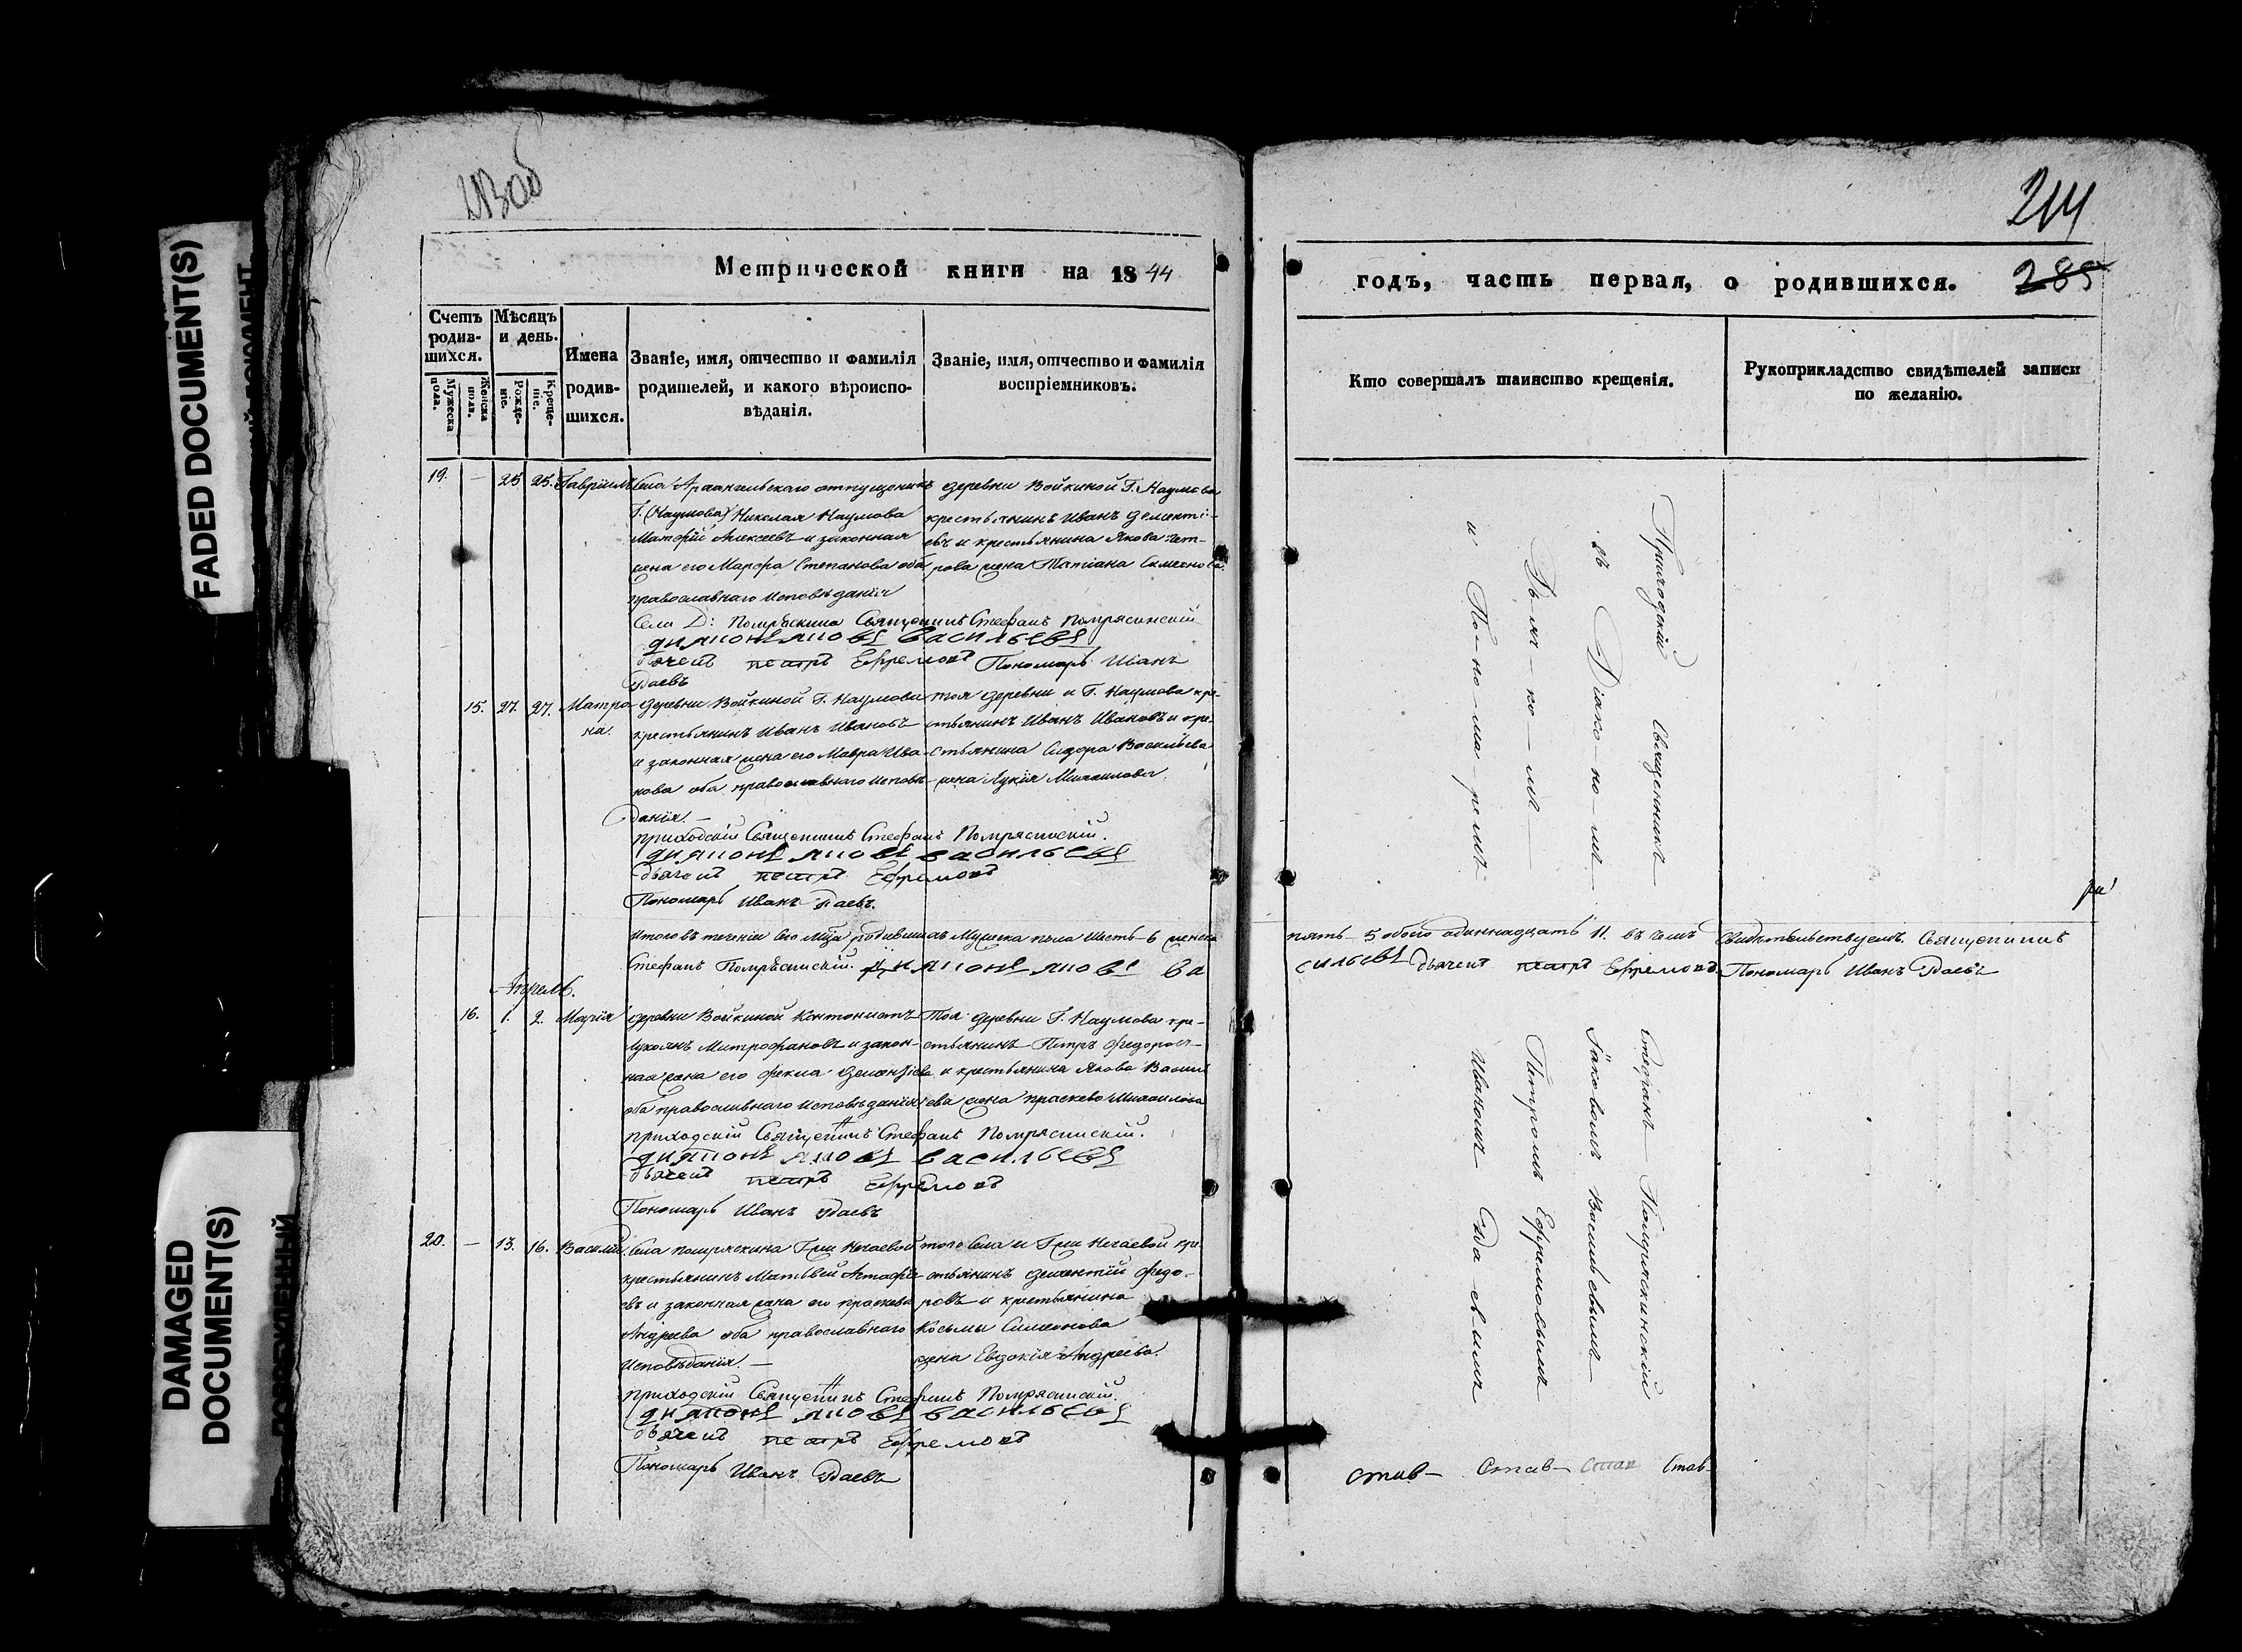 FADED DOCUMENT(S)
DAMAGED
DOCUMENT(S)
ПОВРЕЖДЕННЫЙ
214
285
Метрической книги на 1844
годъ, часть первая, о родившихся.
Счетъ родив-шихся.
Мужеска пола.
Женска пола.
Мѣсяцъ и день.
Рожде-ніе.
Креще-ніе.
Имена родив-шихся.
Званіе, имя, отчество и фамилія
родителей, и какого вѣроиспо-
вѣданія.
Званіе, имя, отчество и фамилія
воспріемниковъ.
Кто совершалъ таинство крещенія.
Рукоприкладство свидѣтелей записи
по желанію.
19. — 25 25. Гавріилъ
Села Архангельскаго отпущеникъ
Г. (Наумова) Николая Наумова
Алексеевъ и законная
жена его Марфа Степанова оба
православнаго исповѣданія
деревни Войкиной Г. Наумова
крестьянинъ Иванъ Дементі-
евъ и крестьянина Якова Пет-
рова жена Татіана Симеонова.
Села Священникъ Стефанъ Помряскинскій
дияконъ яковъ васильевъ
дьячекъ петръ Ефремовъ Пономарь Иванъ
15. 27. 27. Матро-
на.
деревни Войкиной Г. Наумова
крестьянинъ Иванъ Ивановъ
и законная жена его Мавра Ива-
нова оба православнаго исповѣ-
данія. —
тоя деревни и Г. Наумова кре-
стьянинъ Иванъ Ивановъ и кре-
стьянина Сидора Васильева
жена Лукія Михаилова.
приходскій Священникъ Стефанъ Помряскинскій.
дияконъ яковъ васильевъ
дьячекъ петръ Ефремовъ
Пономарь Иванъ
Итого въ теченіи сего м͠ца родившихъ Мужеска пола шесть — 6 женска
пять — 5 обоего одиннадцать 11. въ чемъ свидѣтельствуемъ. Священникъ
Стефанъ Помряскинскій. дияконъ яковъ ва
сильевъ дьячекъ петръ Ефремовъ Пономарь Иванъ
Апрель.
16. 1. 2. Марія
деревни Войкиной Кантонистъ
Лукоянъ Митрофановъ и закон-
ная жена его Фекла Дементіева
оба православнаго исповѣданія
Тоя деревни Г. Наумова кре-
стьянинъ Петръ Федоровъ
и крестьянина Якова Василь
ева жена праскева Михаилова
приходскій Священникъ Стефанъ Помряскинскій.
дияконъ яковъ васильевъ
дьячекъ петръ Ефремовъ
Пономарь Иванъ
20. — 13. 16. Василій.
Села помряскина Г͠жи Нечаевой
крестьянинъ Матвей Астафіе
евъ и законная жена его праскева
Андреева оба православнаго
исповѣданія. —
того Села и Г͠жи Нечаевой кре
стьянинъ Дементій Федо-
ровъ и крестьянина
Косьмы Симеонова
жена Евдокія Андреева.
приходскій Священникъ Стефанъ Помряскинскій.
дияконъ яковъ васильевъ
дьячекъ петръ Ефремовъ
Пономарь Иванъ
Приходскій Священникъ Стефанъ Помряскинскій
съ Діако-но-мъ Іаковомъ Васильевымъ
Дья-ч-ко-мъ Петромъ Ефремовымъ
и По-но-ма-ремъ Иваномъ
став— Став— Став—